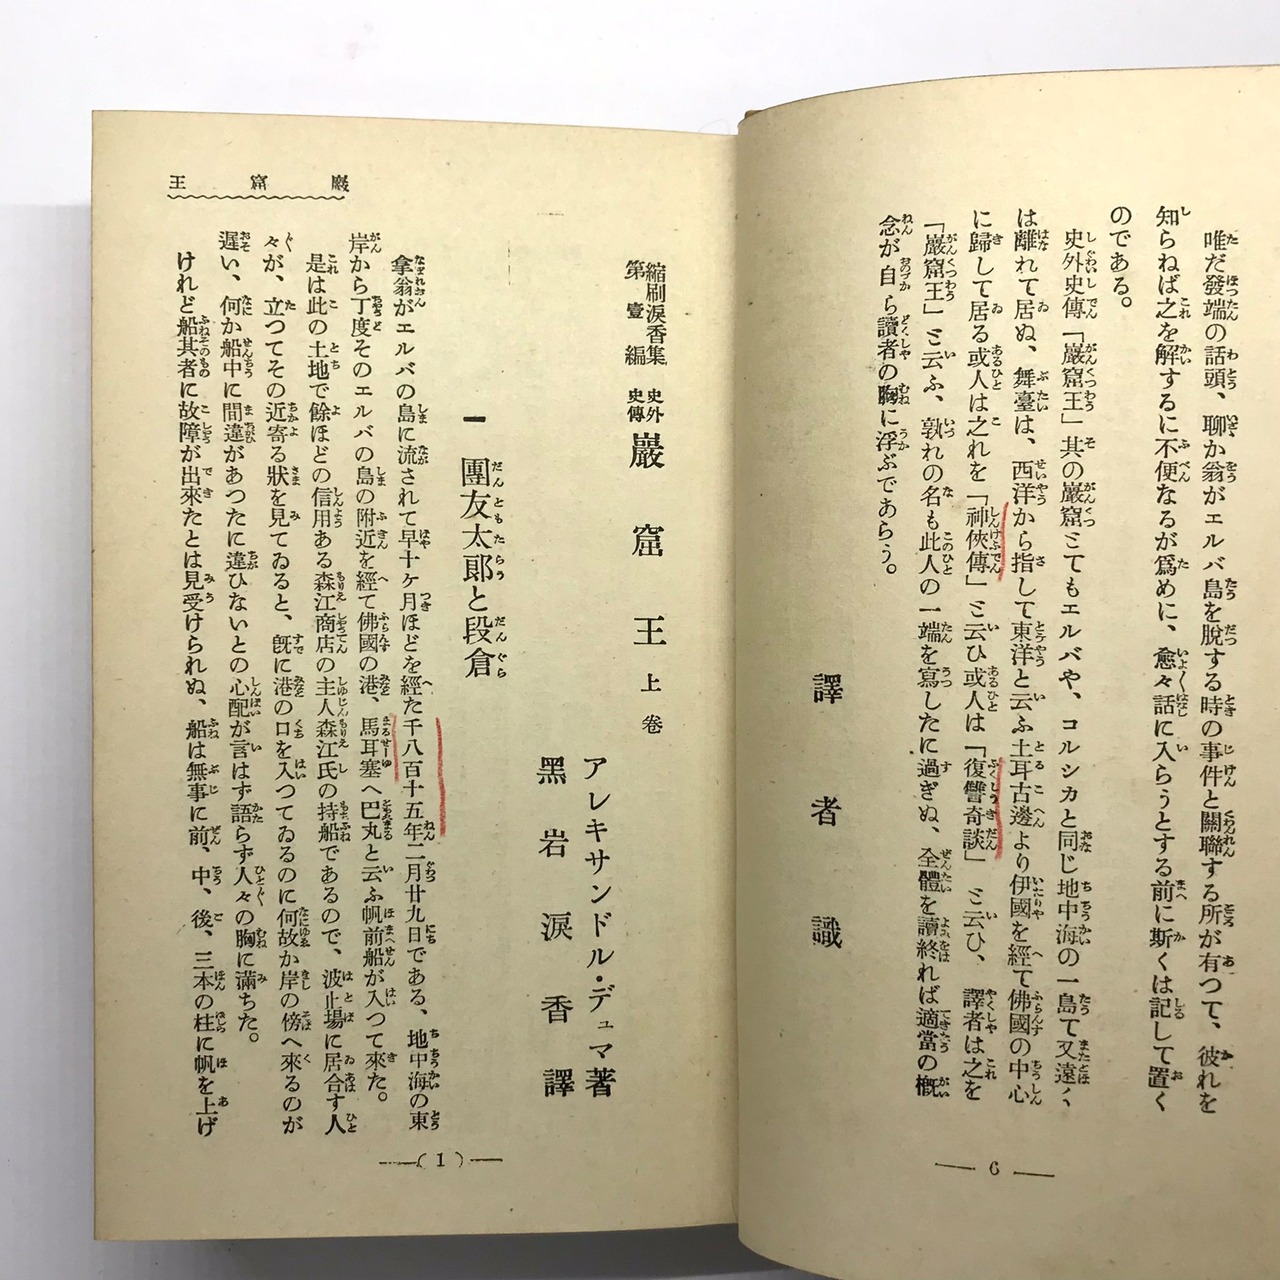 唯だ發端の話頭、聊か翁がエルバ島を脫する時の事件と關聯する所が有つて、彼れを
知らねば之を解するに不便なるが爲めに、愈々話に入らうとする前に斯くは記して置く
のである。
史外史傳「巖窟王」其の巖窟とてもエルバや、コルシカと同じ地中海の一島で又遠く
は離れて居ぬ、舞臺は、西洋から指して東洋と云ふ土耳古邊より伊國を經て佛國の中心
に歸して居る或人は之れを「神俠傳」と云ひ或人は「復讐奇談」と云ひ、譯者は之を
「巖窟王」と云ふ、孰れの名も此人の一端を寫したに過ぎぬ、全體を讀終れば適當の概
念が自ら讀者の胸に浮ぶであらう。
譯者識
6
巖窟王
縮刷淚香集
第壹編
史外
史傳
巖窟王上卷
アレキサンドル・デュマ著
黑岩淚香譯
一 團友太郞と段倉
拿翁がエルバの島に流されて早十ヶ月ほどを經た千八百十五年二月廿九日である、地中海の東
岸から丁度そのエルバの島の附近を經て佛國の港、馬耳塞へ巴丸と云ふ帆前船が入つて來た。
是は此の土地で餘ほどの信用ある森江商店の主人森江氏の持船であるので、波止場に居合す人
々が、立つてその近寄る狀を見てゐると、旣に港の口を入つてゐるのに何故か岸の傍へ來るのが
遲い、何か船中に間違があつたに違ひないとの心配が言はず語らず人々の胸に滿ちた。
けれど船其者に故障が出來たとは見受けられぬ、船は無事に前、中、後、三本の柱に帆を上げ
(1)